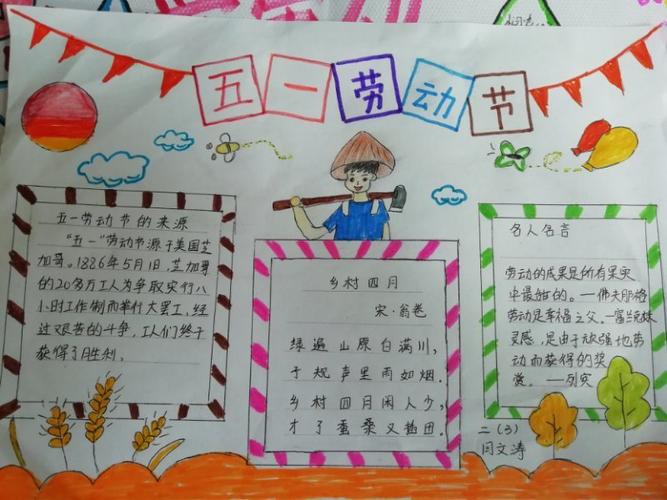 五一劳动节
五一劳动节的来源
“五一”劳动节源于美国芝
加哥。1886年5月1日,芝加哥
的20多万工人为争取实行八
小时工作制而举行大罢工,经
过艰苦的斗争,工人们终于
获得了胜利。
乡村四月
宋·翁卷
绿遍山原白满川,
子规声里雨如烟.
乡村四月闲人少,
才了蚕桑又插田.
名人名言
劳动的成果是所有果实
中最甜的。——佛夫
劳动是幸福之父。—富兰克林
灵感,是由于顽强地劳
动而获得的奖
赏。——列宾
二(3)
闫文涛